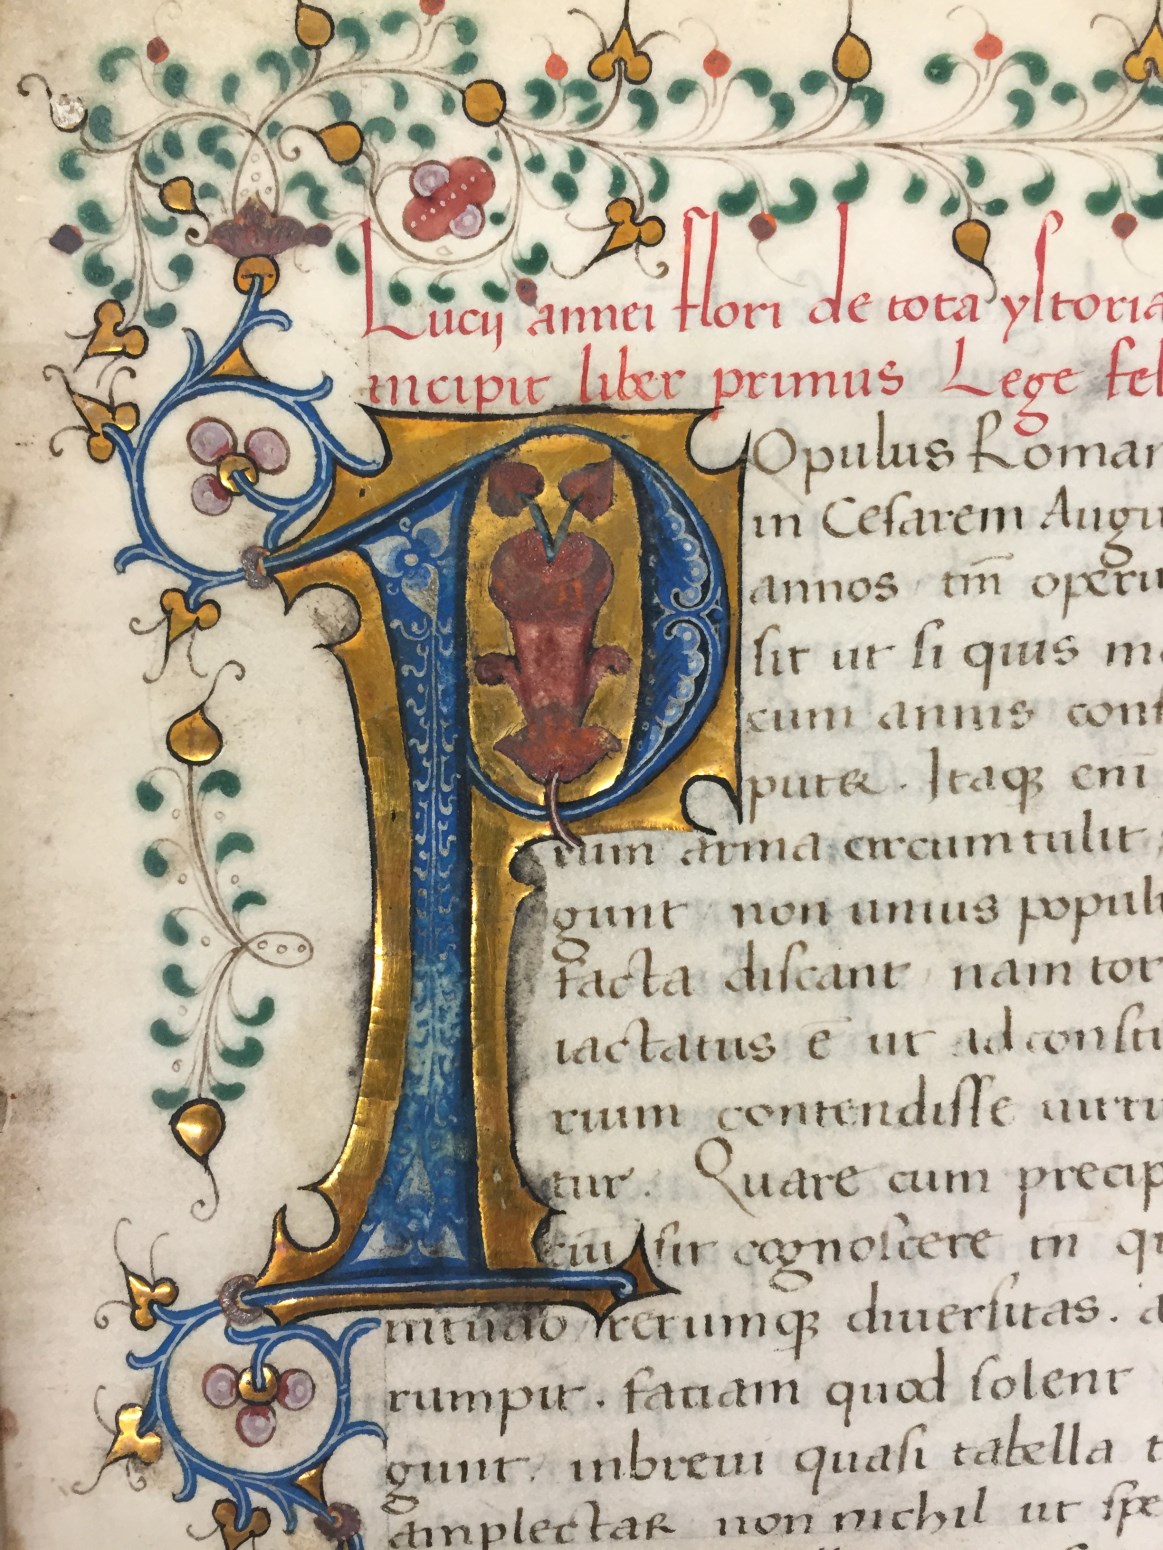 Lucij annei flori de tota ystoria
incipit liber primus Lege fel
POpulus Roman
in Cesarem Augu
annos tm̄ operu
sit ut si quis ma
cum annis conf
putet. Itaq; eni
rum arma circumtulit
gunt non unius populi
facta discant nam tot
iactatus ē ut ad consti
rium contendisse uirtu
tur. Quare cum precip
sit cognoscere tn̄ qu
nitudo rerumq; diuersitas. a
rumpit. fatiam quod solent
gunt. inbreui quasi tabella t
amplectar non nichil ut spe